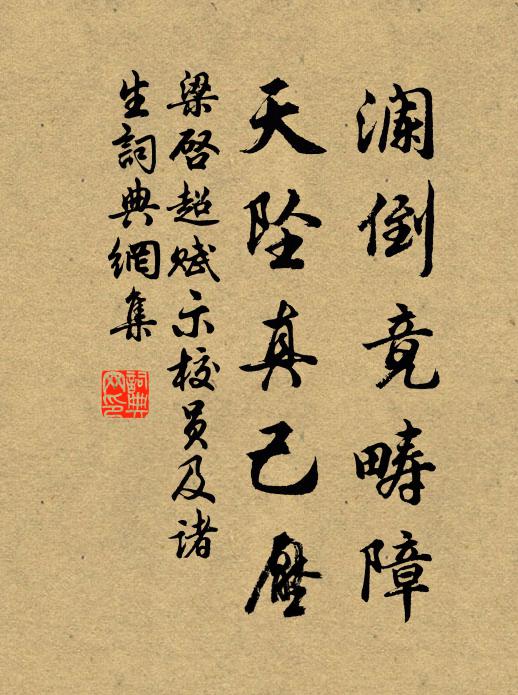 澜倒竟畴障
天坠真己壓
梁启超赋示校员及诸
生詞典網集
詞典网印